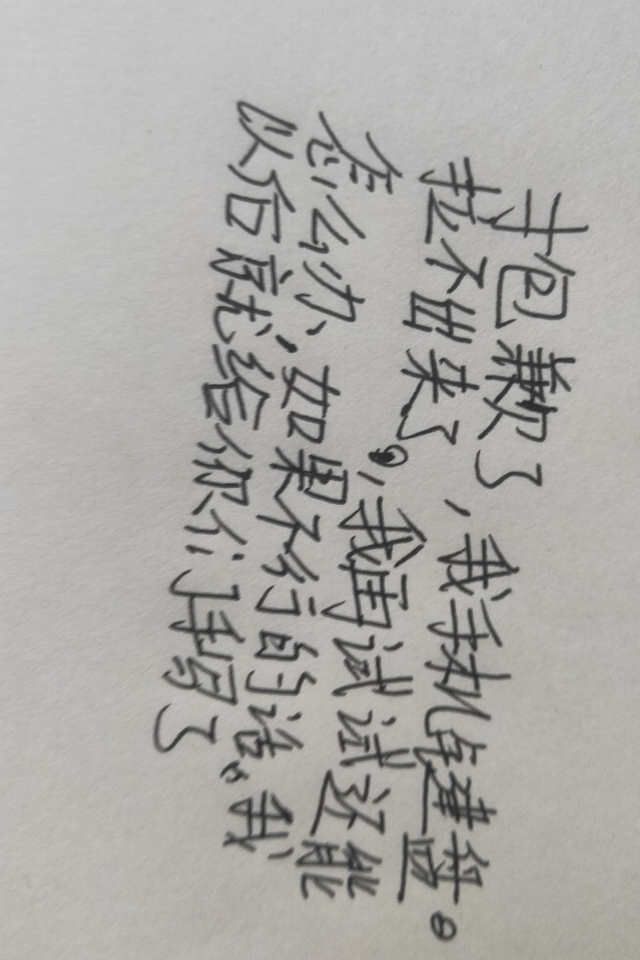 抱歉了，我手机键盘。
拉不出来了，我再试试还能
怎么办，如果不行的话，我
以后就给你们手写了